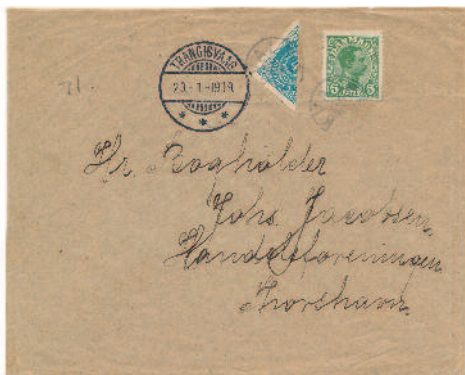 TRANGISVAAG
23.-1-1919
DANMARK
5
Hr. Bogholder
Johs. Jacobsen,
Handelsforeningen,
Thorshavn.